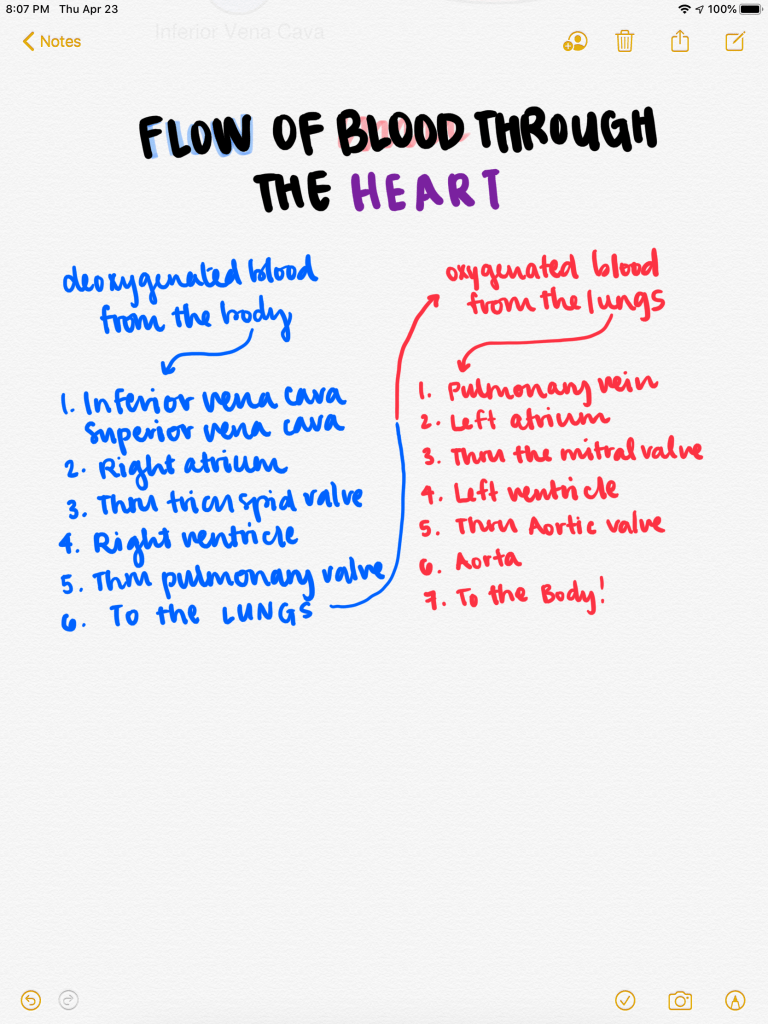 8:07 PM Thu Apr 23
100%
Inferior Vena Cava
Notes
FLOW OF BLOOD THROUGH
THE HEART
deoxygenated blood
from the body
1. Inferior vena cava
superior vena cava
2. Right atrium
3. Thru tricuspid valve
4. Right ventricle
5. Thru pulmonary valve
6. To the LUNGS
oxygenated blood
from the lungs
1. Pulmonary vein
2. Left atrium
3. Thru the mitral valve
4. Left ventricle
5. Thru Aortic valve
6. Aorta
7. To the Body!